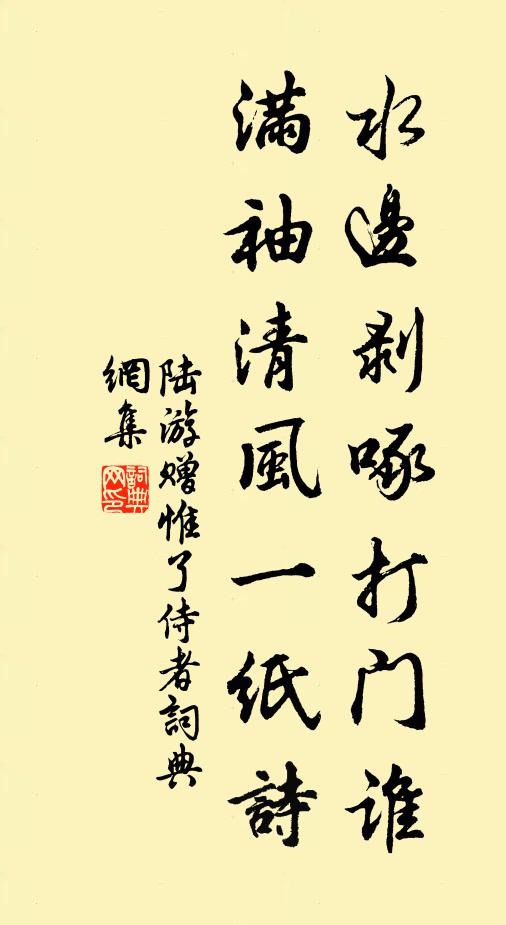 水邊剥啄打门誰
滿袖清風一紙詩
陆游赠惟了侍者詞典
網集
詞典網印